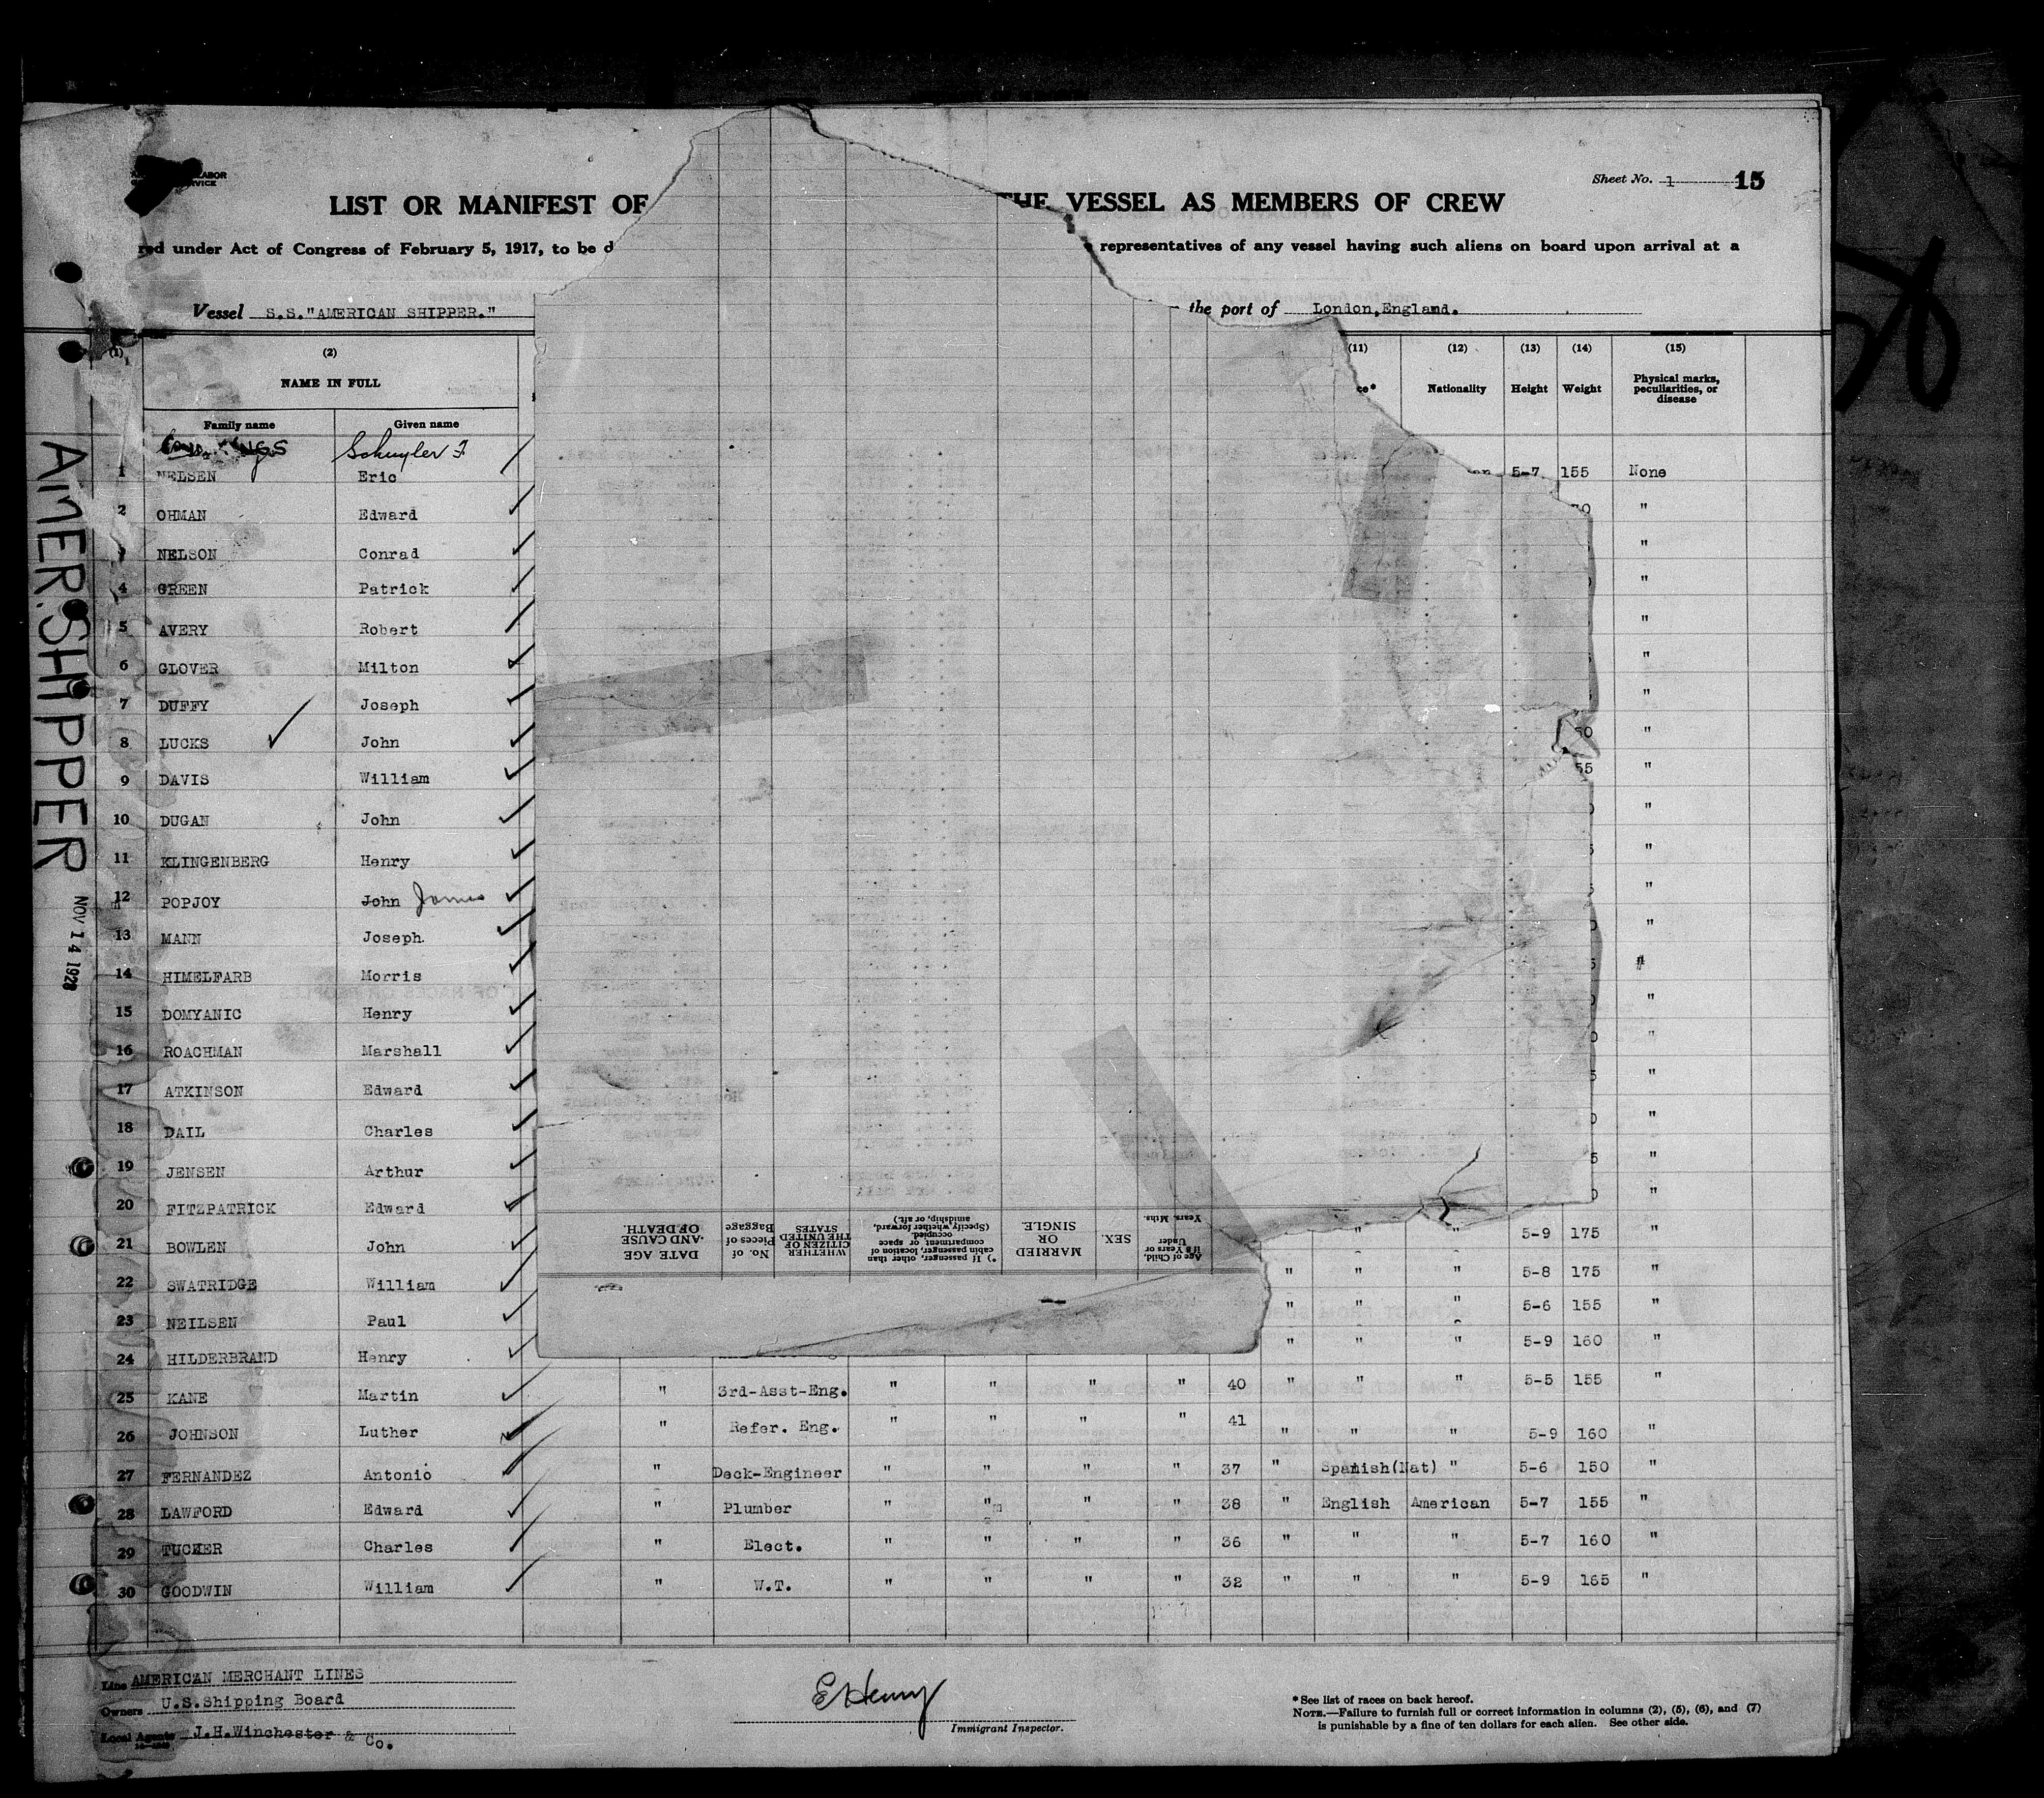 LABOR
Sheet No. 1 15
LIST OR MANIFEST OF THE VESSEL AS MEMBERS OF CREW
red under Act of Congress of February 5, 1917, to be d representatives of any vessel having such aliens on board upon arrival at a
Vessel S.S."AMERICAN SHIPPER." the port of London,England.
(1) (2) (11) (12) (13) (14) (15)
NAME IN FULL Nationality Height Weight Physical marks, peculiarities, or disease
Family name Given name
Schuyler F
1 NELSEN Eric 5-7 155 None
2 OHMAN Edward "
3 NELSON Conrad "
4 GREEN Patrick "
5 AVERY Robert "
6 GLOVER Milton "
7 DUFFY Joseph "
8 LUCKS John "
9 DAVIS William 55 "
10 DUGAN John "
11 KLINGENBERG Henry "
12 POPJOY John James "
13 MANN Joseph. "
14 HIMELFARB Morris "
15 DOMYANIC Henry "
16 ROACHMAN Marshall "
17 ATKINSON Edward "
18 DAIL Charles "
19 JENSEN Arthur "
20 FITZPATRICK Edward "
21 BOWLEN John " " 5-9 175 "
22 SWATRIDGE William " " " 5-8 175 "
23 NEILSEN Paul " " " 5-6 155 "
24 HILDERBRAND Henry " " " 5-9 160 "
25 KANE Martin " 3rd-Asst-Eng. " " " " 40 " " " 5-5 155 "
26 JOHNSON Luther " Refer. Eng. " " " " 41 " " " 5-9 160 "
27 FERNANDEZ Antonio " Deck-Engineer " " " " 37 " Spanish(Nat) " 5-6 150 "
28 LAWFORD Edward " Plumber " " " " 38 " English American 5-7 155 "
29 TUCKER Charles " Elect. " " " " 36 " " " 5-7 160 "
30 GOODWIN William " W.T. " " " " 32 " " " 5-9 165 "
DATE AGE AND CAUSE OF DEATH.
No. of Pieces of Baggage
WHETHER CITIZEN OF THE UNITED STATES
*) If passenger, other than cabin passenger, location of compartment or space occupied. (Specify whether forward, amidship, or aft.)
MARRIED OR SINGLE.
SEX.
Age of Child, if 8 Years or Under
Years. Mths.
AMER. SHIPPER
NOV 14 1928
Line AMERICAN MERCHANT LINES
Owners U.S.Shipping Board
Local Agents J.H.Winchester & Co.
E Henry
Immigrant Inspector.
*See list of races on back hereof.
NOTE.—Failure to furnish full or correct information in columns (2), (5), (6), and (7)
is punishable by a fine of ten dollars for each alien. See other side.